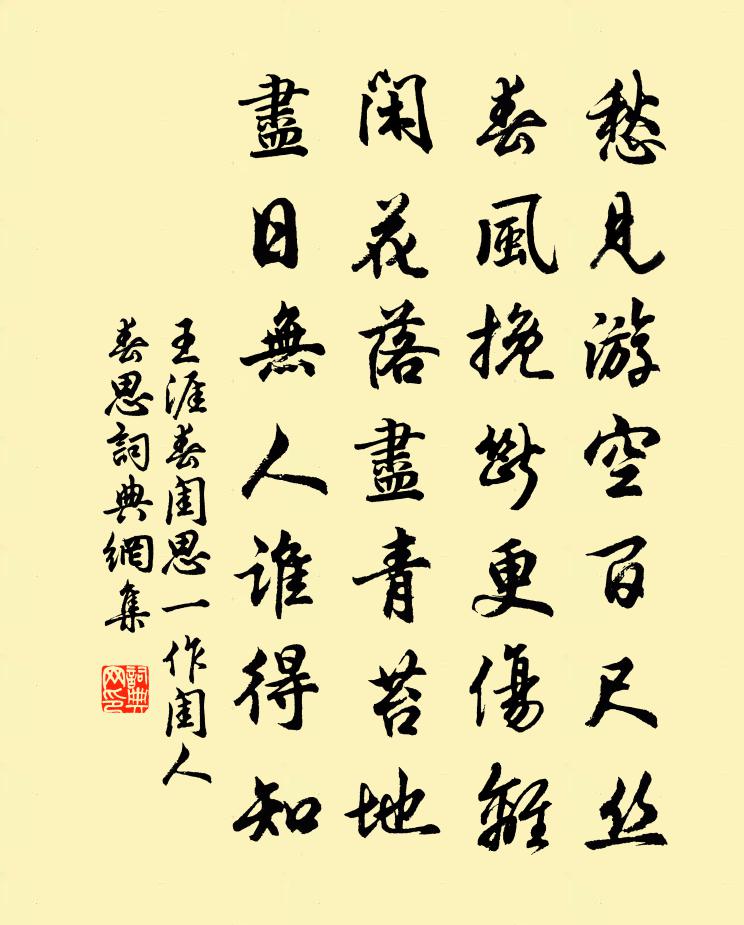 愁見游空百尺丝
春風挽斷更傷離
閑花落盡青苔地
盡日無人誰得知
王涯春閨思一作閨人
春思詞典網集
詞典网印